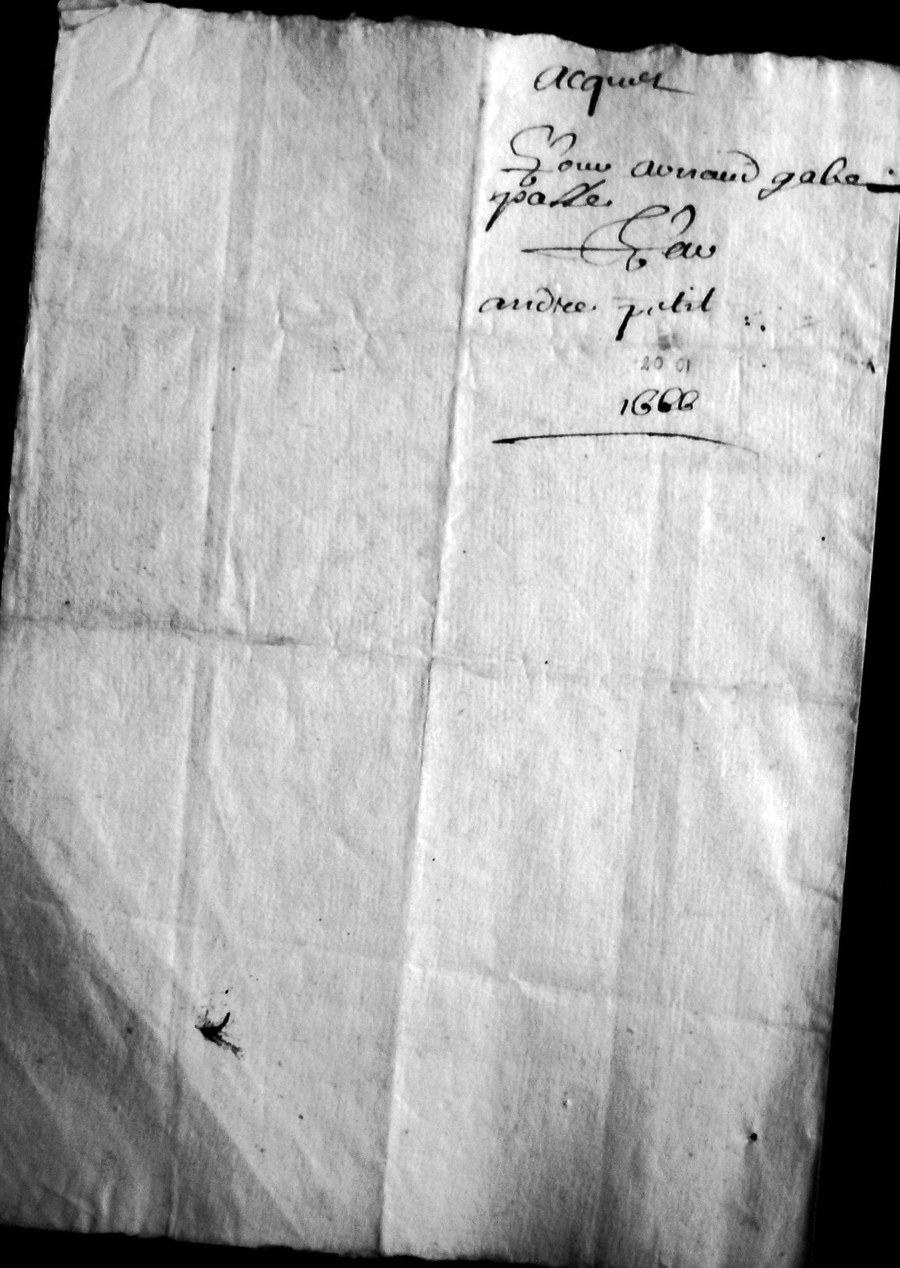 acquit
Pour arnaud gabe
passe
Par
andre petit
20 01
1666